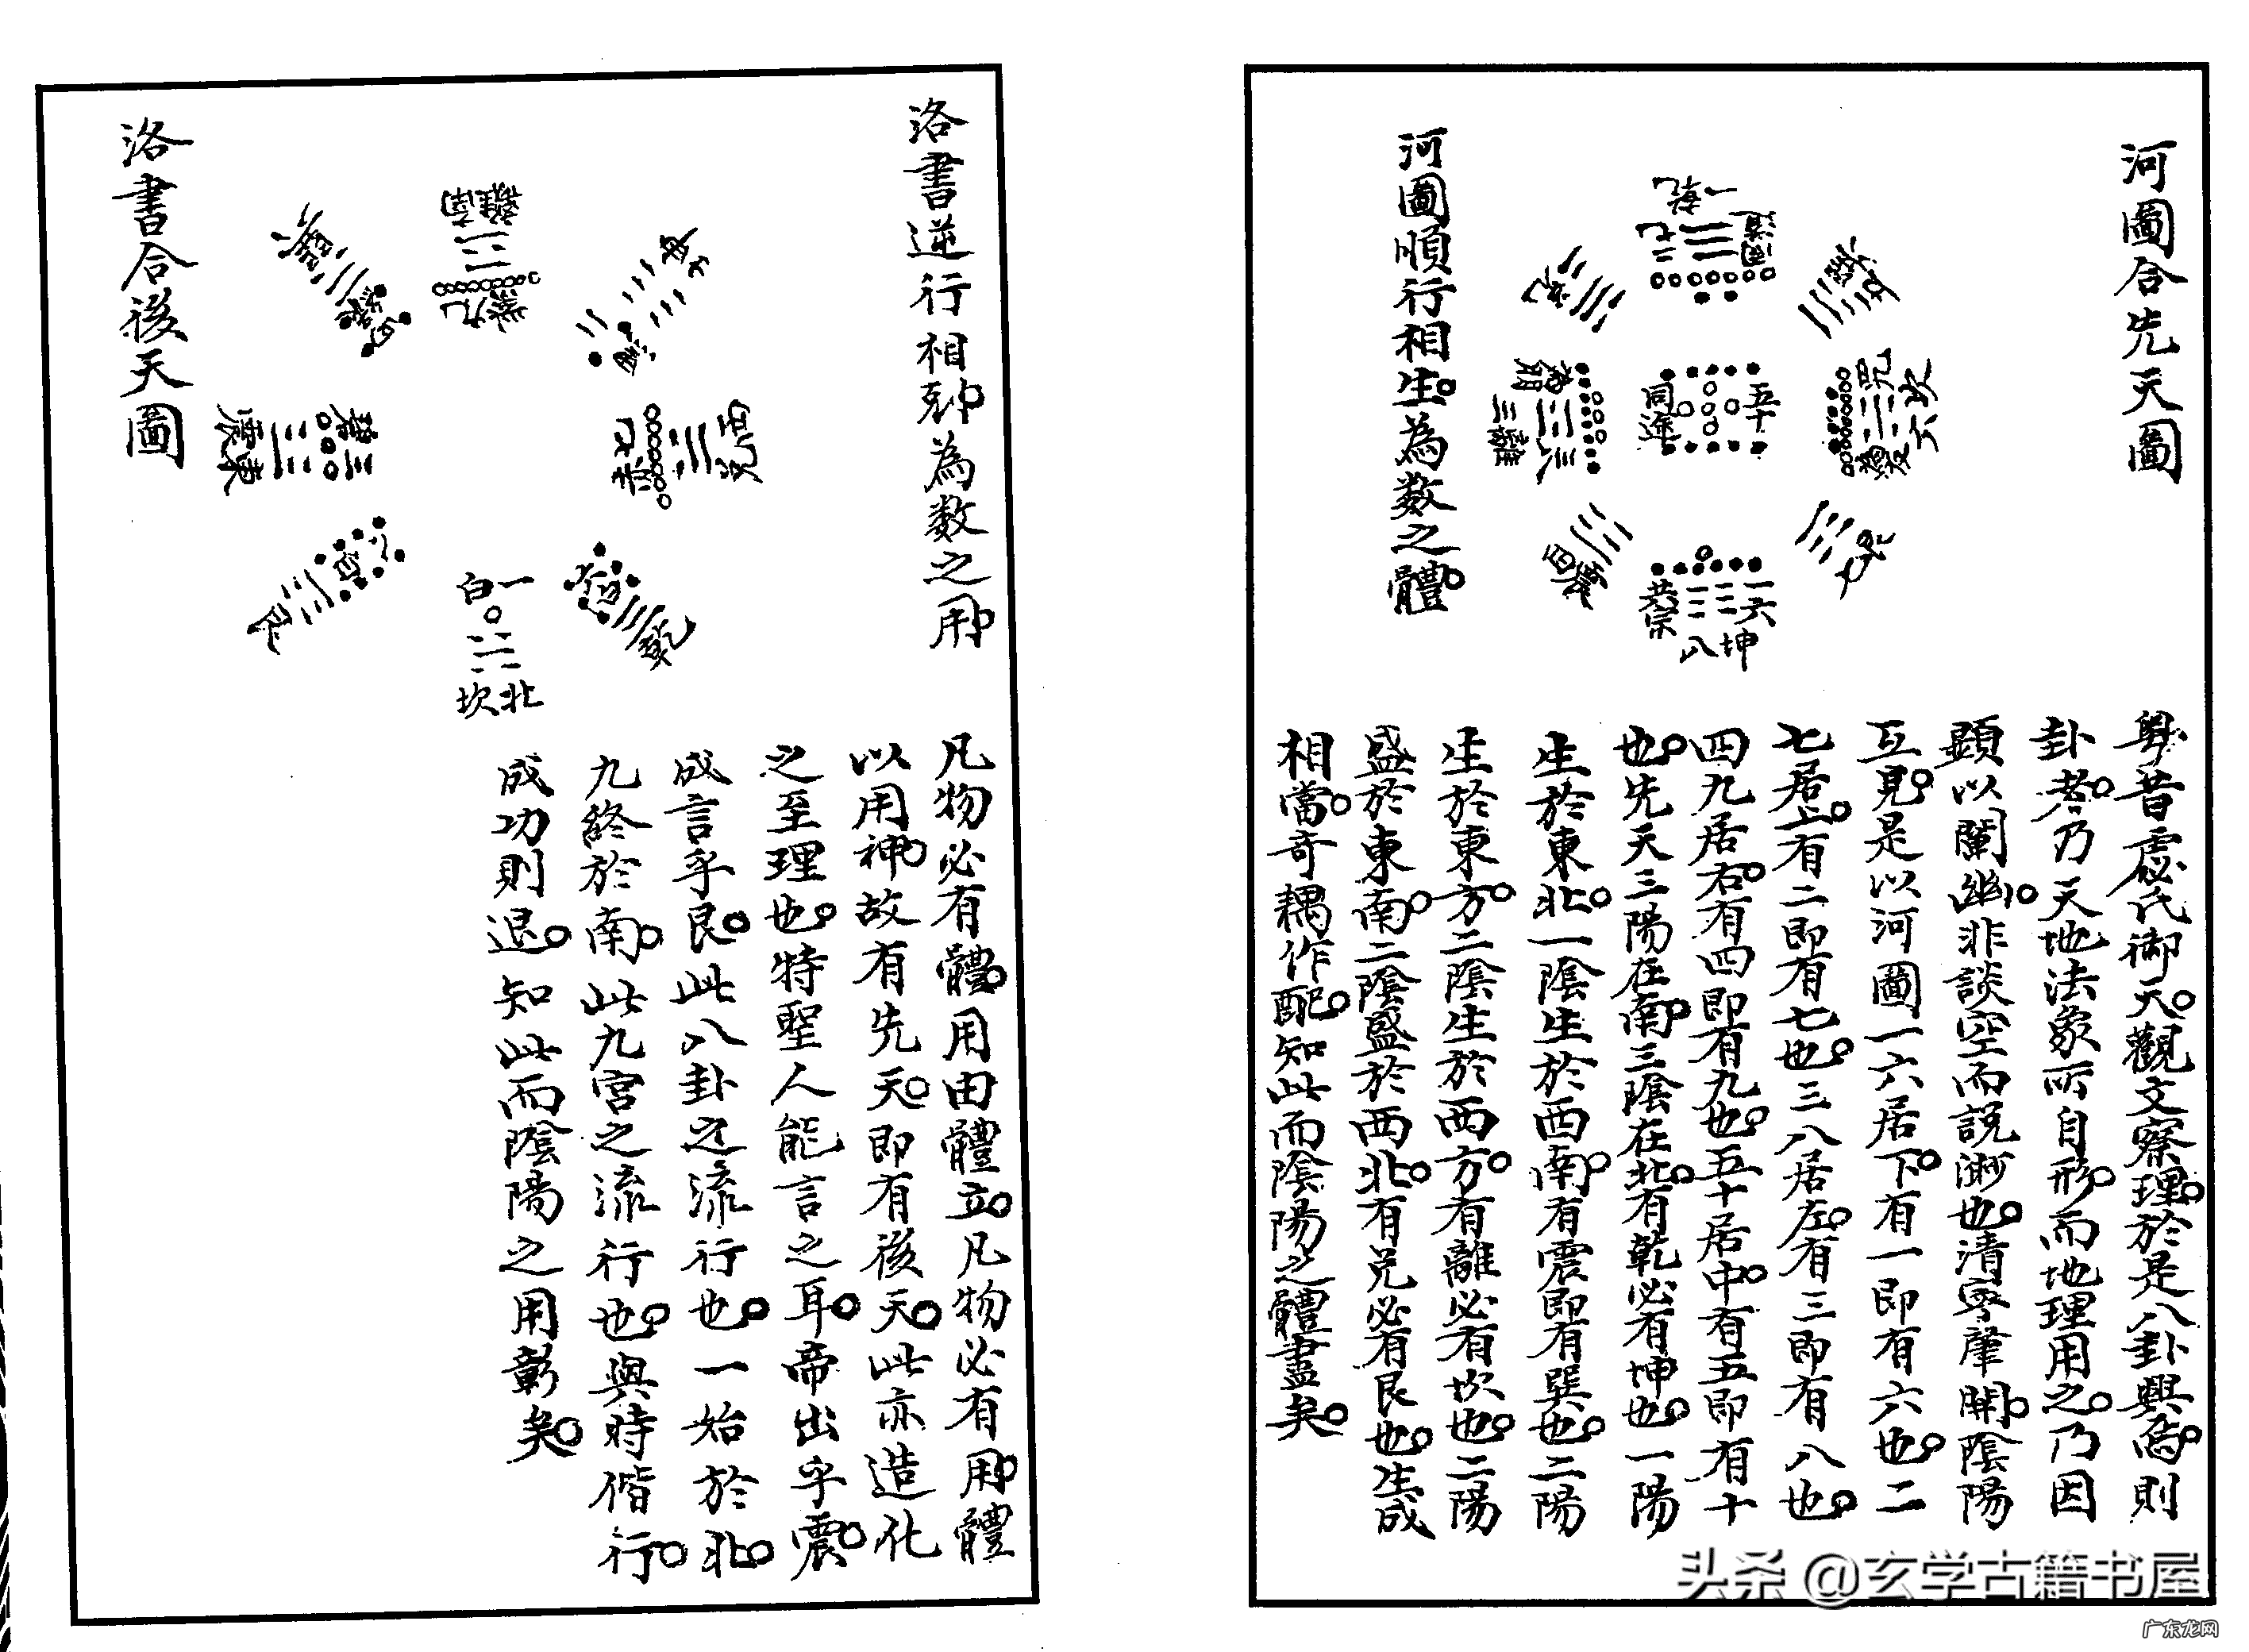 河圖合先天圖
一乾
二七
五十
同途
三八
為朋
離三
坎六
四九
為友
兌二
艮七
巽五
震四
一六
共宗
坤八
河圖順行相生為数之體
粤昔虙氏御天觀文察理於是八卦興焉則
卦者乃天地法象所自形而地理用之乃因
顯以闡幽非談空而說渺也清寧肇開陰陽
互見是以河圖一六居下有一即有六也二
七居上有二即有七也三八居左有三即有八也
四九居右有四即有九也五十居中有五即有十
也先天三陽在南三陰在北有乾必有坤也一陽
生於東北一陰生於西南有震即有巽也二陽
生於東方二陰生於西方有離必有坎也二陽
盛於東南二陰盛於西北有兌必有艮也生成
相當奇耦作配知此而陰陽之體盡矣
洛書逆行相尅為数之用
離南
九紫
坤
二黑
西兌
七赤
乾
六白
一白
北坎
艮
八白
震東
碧三
巽
四綠
洛書合後天圖
凡物必有體用由體立凡物必有用體
以用神故有先天即有後天此亦造化
之至理也特聖人能言之耳帝出乎震
成言乎艮此八卦之流行也一始於北
九終於南此九宮之流行也與時偕行
成功則退知此而陰陽之用彰矣
头条 @玄学古籍书屋
广东龙网